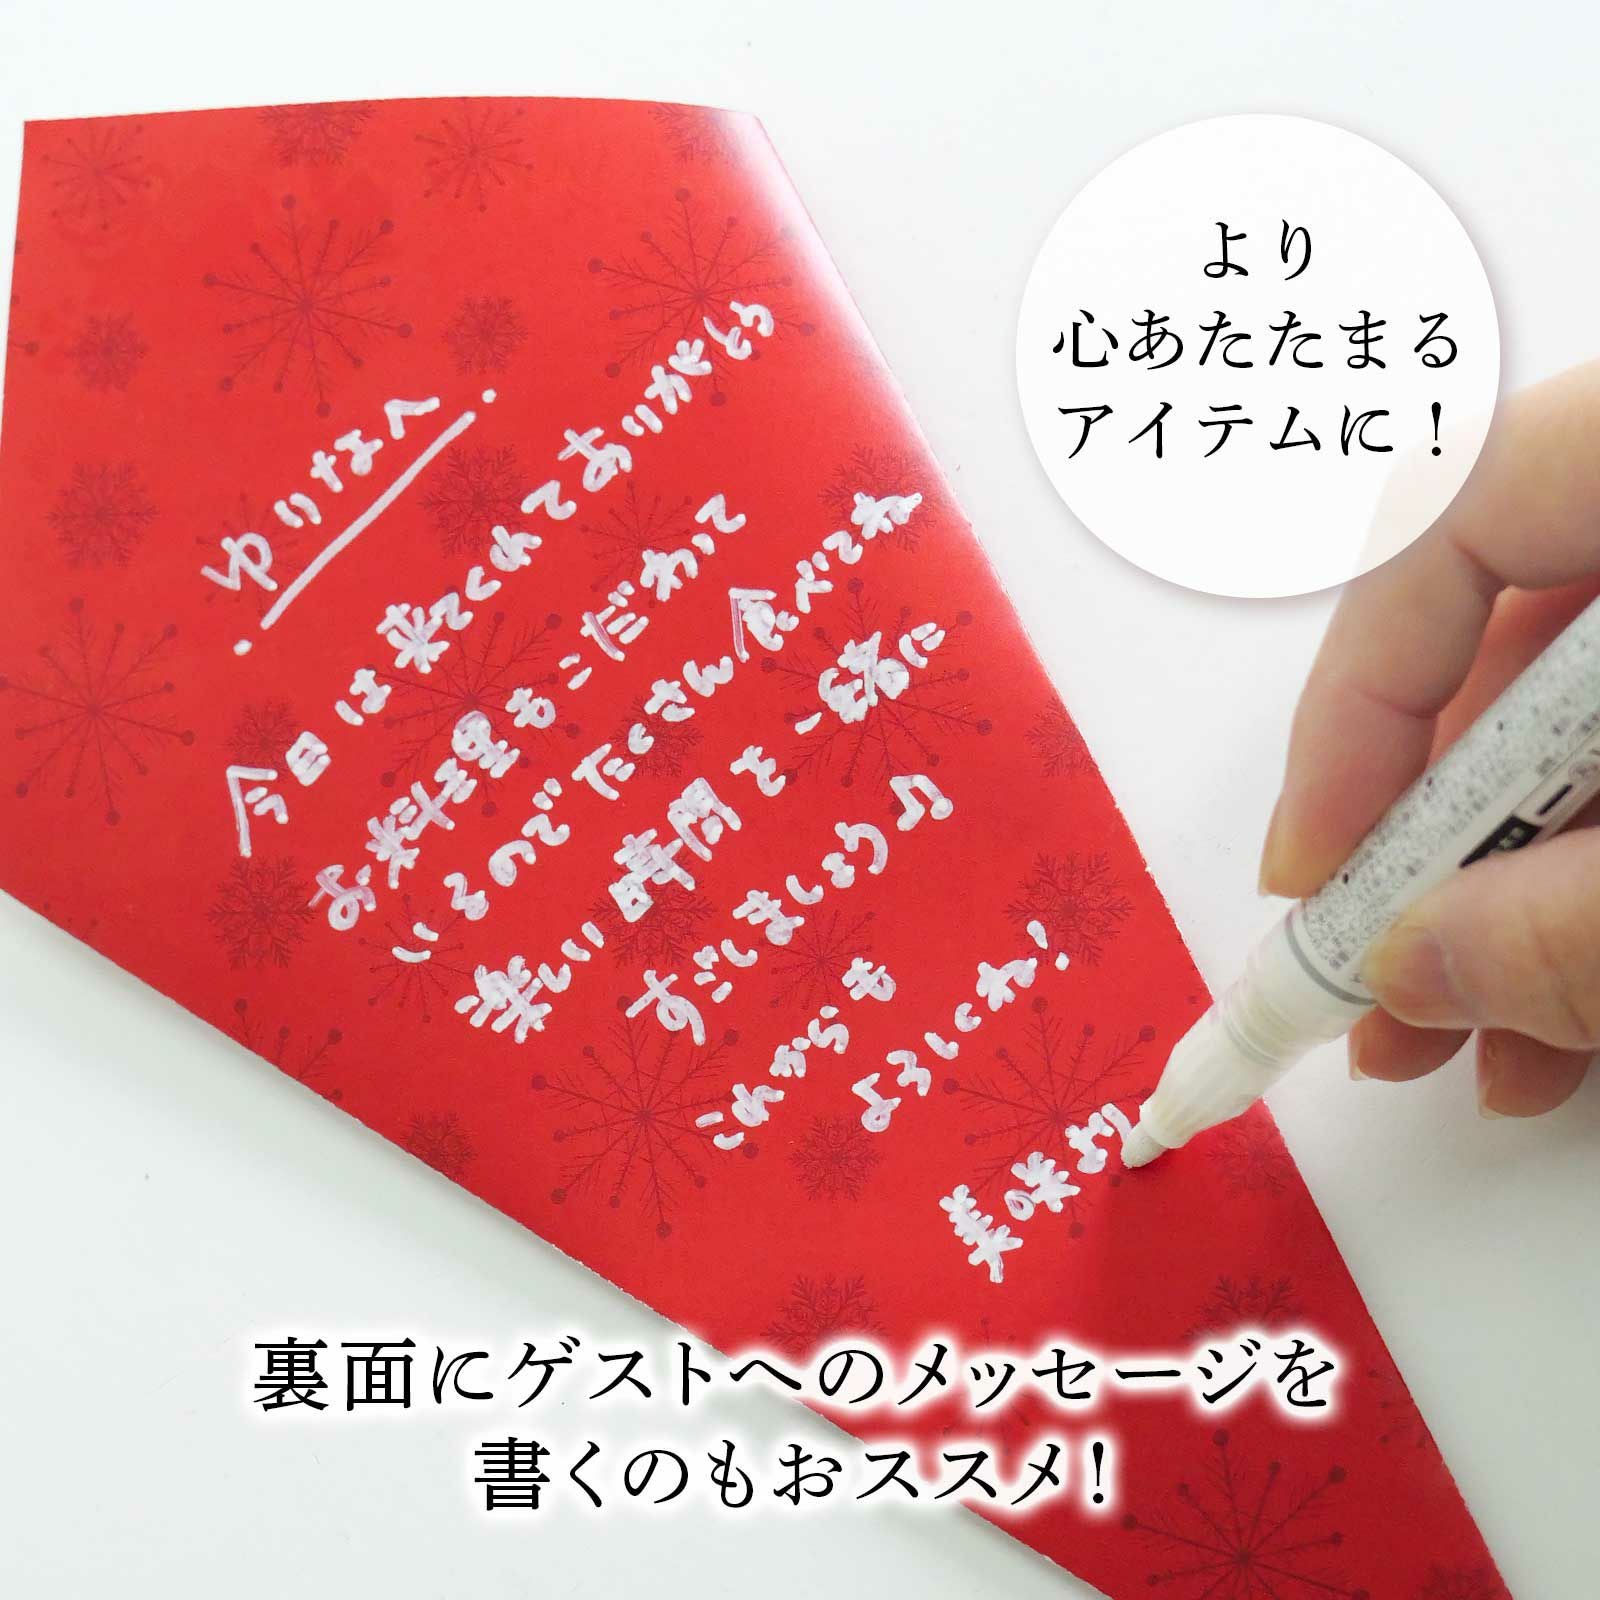 より
心あたたまる
アイテムに！
ゆりなへ
今日は来てくれてありがとう
お料理もこだわって
いるのでたくさん食べてね
楽しい時間を一緒に
すごしましょう♫
これからも
よろしくね！
美咲
裏面にゲストへのメッセージを
書くのもおススメ！